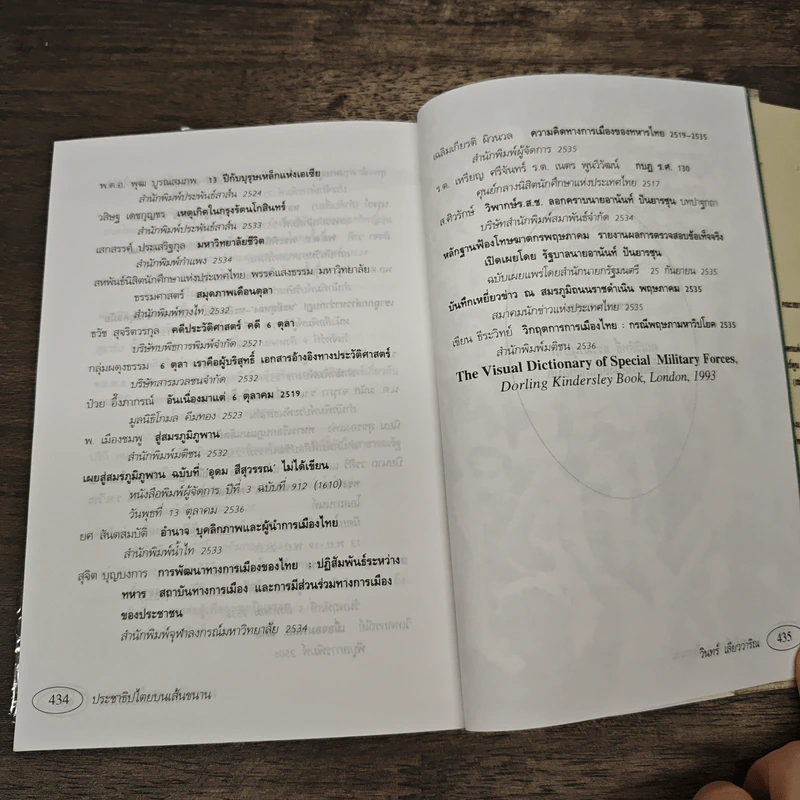 พ.ต.อ. พุฒ บูรณสมภพ 13 ปีกับบุรุษเหล็กแห่งเอเซีย
สำนักพิมพ์ประพันธ์สาส์น 2524
วสิษฐ เดชกุญชร เหตุเกิดในกรุงรัตนโกสินทร์
สำนักพิมพ์ประพันธ์สาส์น 2533
เสกสรรค์ ประเสริฐกุล มหาวิทยาลัยชีวิต
สำนักพิมพ์กำแพง 2534
สหพันธ์นิสิตนักศึกษาแห่งประเทศไทย พรรคแสงธรรม มหาวิทยาลัย
ธรรมศาสตร์ สมุดภาพเดือนตุลา
สำนักพิมพ์ทางไท 2532
ธวัช สุจริตวรกุล คดีประวัติศาสตร์ คดี 6 ตุลา
บริษัทบพิธการพิมพ์จำกัด 2521
กลุ่มผดุงธรรม 6 ตุลา เราคือผู้บริสุทธิ์ เอกสารอ้างอิงทางประวัติศาสตร์
บริษัทสารมวลชนจำกัด 2532
ป๋วย อึ๊งภากรณ์ อันเนื่องมาแต่ 6 ตุลาคม 2519
มูลนิธิโกมล คีมทอง 2523
พ. เมืองชมพู สู่สมรภูมิภูพาน
สำนักพิมพ์มติชน 2532
เผยสู่สมรภูมิภูพาน ฉบับที่ 'อุดม สีสุวรรณ' ไม่ได้เขียน
หนังสือพิมพ์ผู้จัดการ ปีที่ 3 ฉบับที่ 912 (1610)
วันพุธที่ 13 ตุลาคม 2536
ยศ สันตสมบัติ อำนาจ บุคลิกภาพและผู้นำการเมืองไทย
สำนักพิมพ์น้ำไท 2533
สุจิต บุญบงการ การพัฒนาทางการเมืองของไทย : ปฏิสัมพันธ์ระหว่าง
ทหาร สถาบันทางการเมือง และการมีส่วนร่วมทางการเมือง
ของประชาชน
สำนักพิมพ์จุฬาลงกรณ์มหาวิทยาลัย 2534
434 ประชาธิปไตยบนเส้นขนาน
เฉลิมเกียรติ ผิวนวล ความคิดทางการเมืองของทหารไทย 2519-2535
สำนักพิมพ์ผู้จัดการ 2535
ร.ต. เหรียญ ศรีจันทร์ ร.ต. เนตร พูนวิวัฒน์ กบฏ ร.ศ. 130
ศูนย์กลางนิสิตนักศึกษาแห่งประเทศไทย 2517
ส.ศิวรักษ์ วิพากษ์ร.ส.ช. ลอกคราบนายอานันท์ ปันยารชุน บทปาฐกถา
บริษัทสำนักพิมพ์สมาพันธ์จำกัด 2534
หลักฐานฟ้องโทษฆาตกรพฤษภาคม รายงานผลการตรวจสอบข้อเท็จจริง
เปิดเผยโดย รัฐบาลนายอานันท์ ปันยารชุน
ฉบับเผยแพร่โดยสำนักนายกรัฐมนตรี 25 กันยายน 2535
บันทึกเหยี่ยวข่าว ณ สมรภูมิถนนราชดำเนิน พฤษภาคม 2535
สมาคมนักข่าวแห่งประเทศไทย 2535
เขียน ธีระวิทย์ วิกฤตการการเมืองไทย : กรณีพฤษภามหาวิปโยค 2535
สำนักพิมพ์มติชน 2536
The Visual Dictionary of Special Military Forces,
Dorling Kindersley Book, London, 1993
วินทร์ เลียววาริณ 435